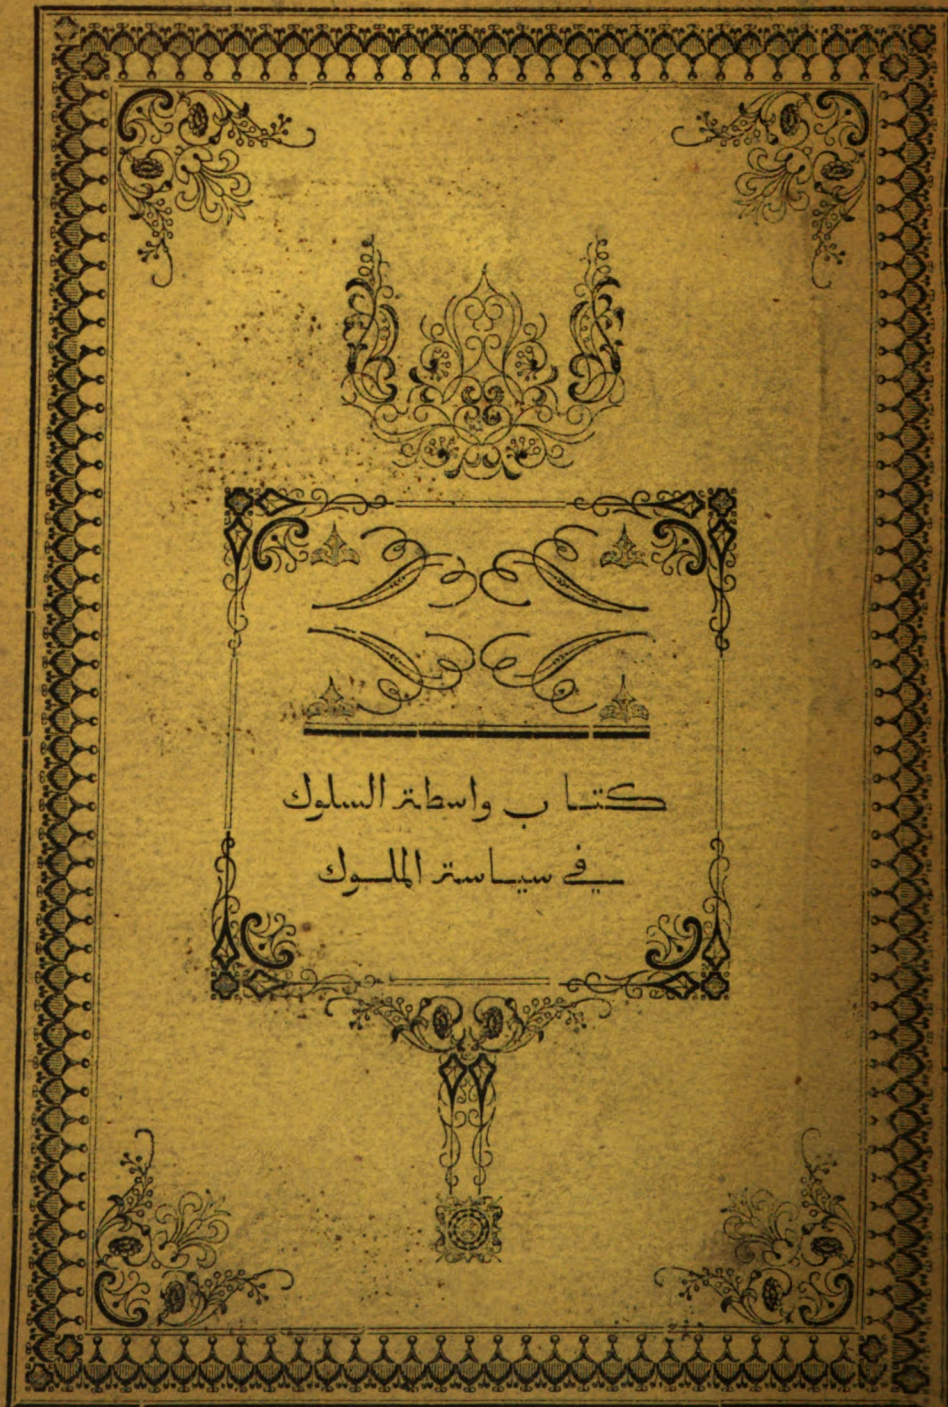 كتاب واسطة السلوك
في سياسة الملوك